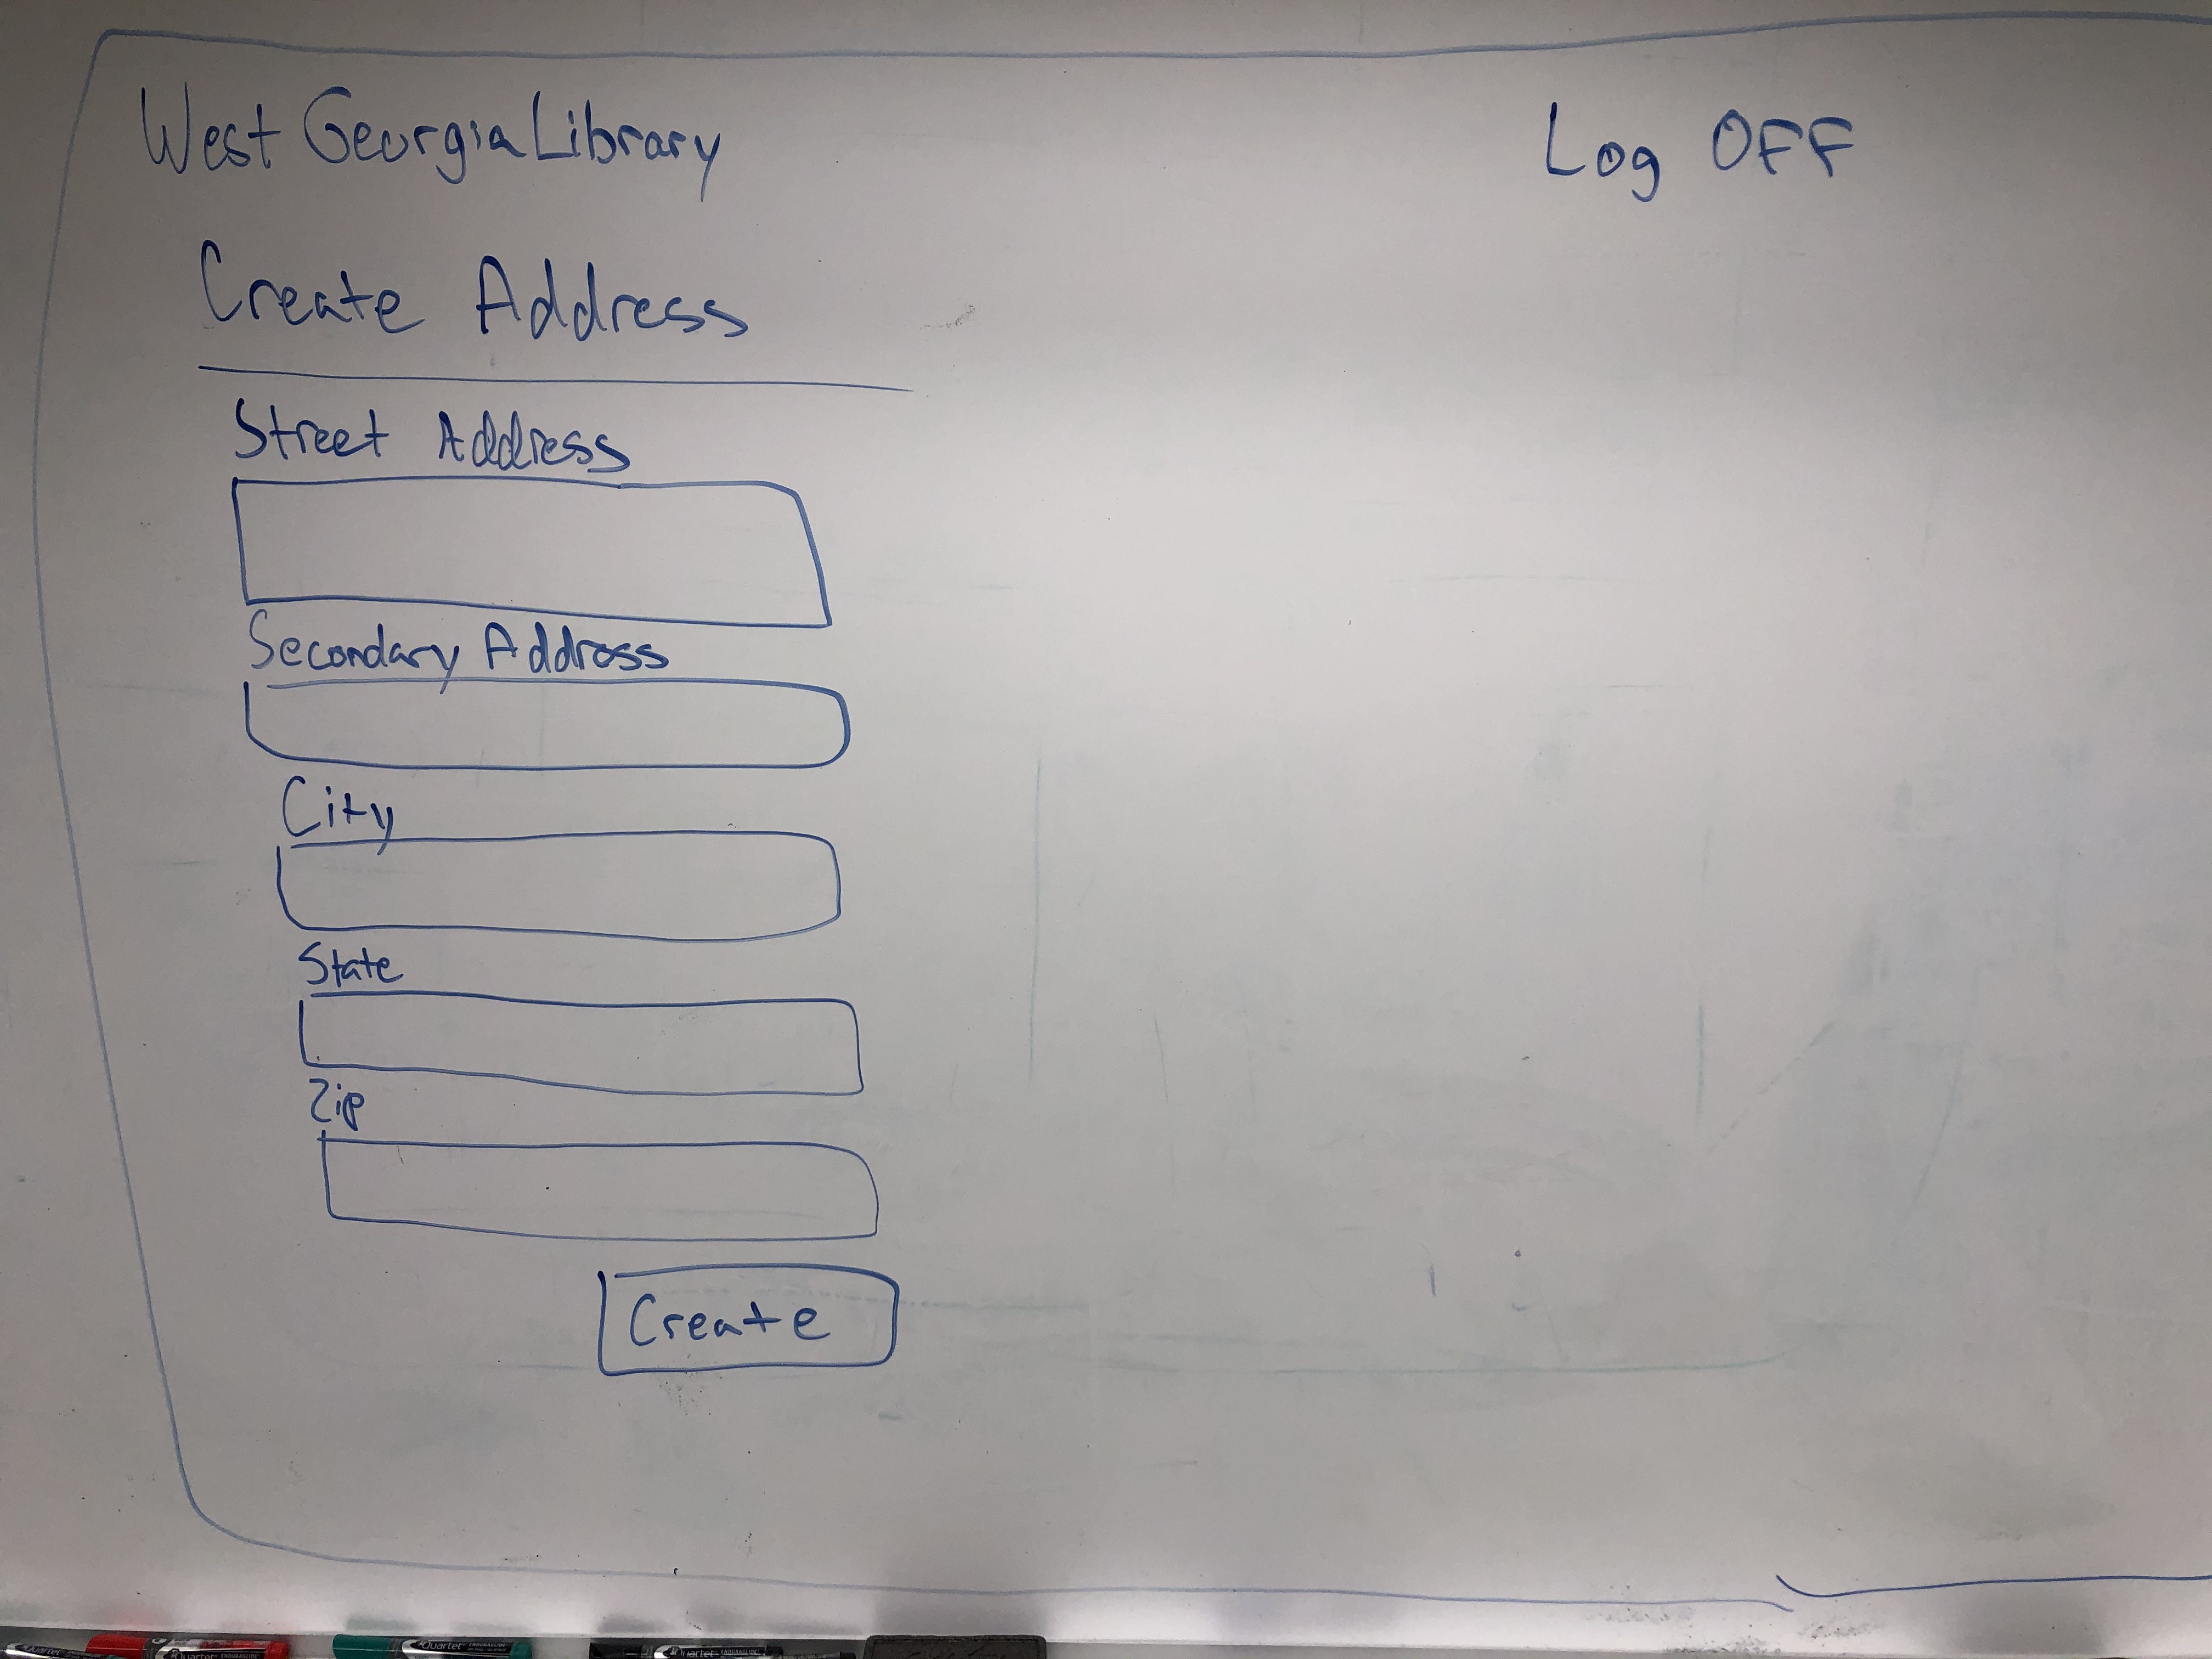 West Georgia Library
Log OFF
Create Address
Street Address
Secondary Address
City
State
Zip
Create
Quartet
Quartet
Quartet